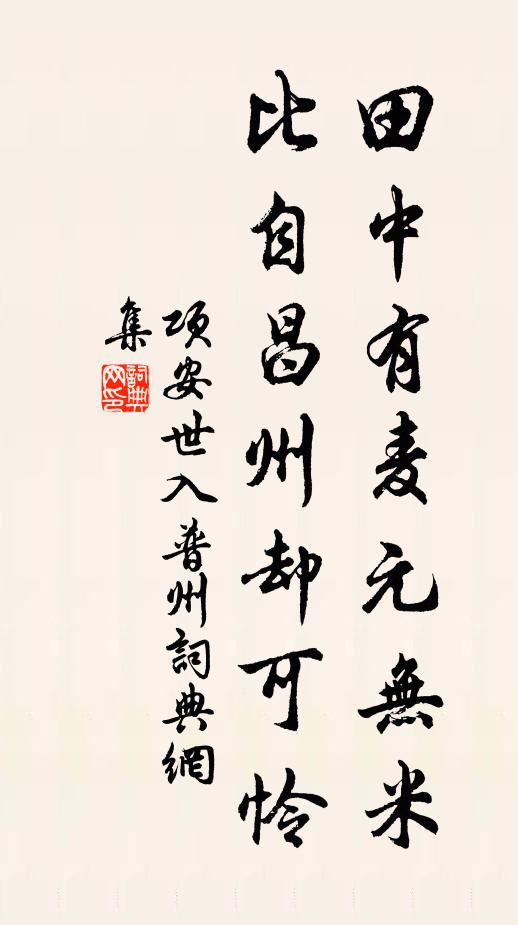 田中有麦元無米
比自昌州却可怜
项安世入普州詞典網
集
詞典
网印